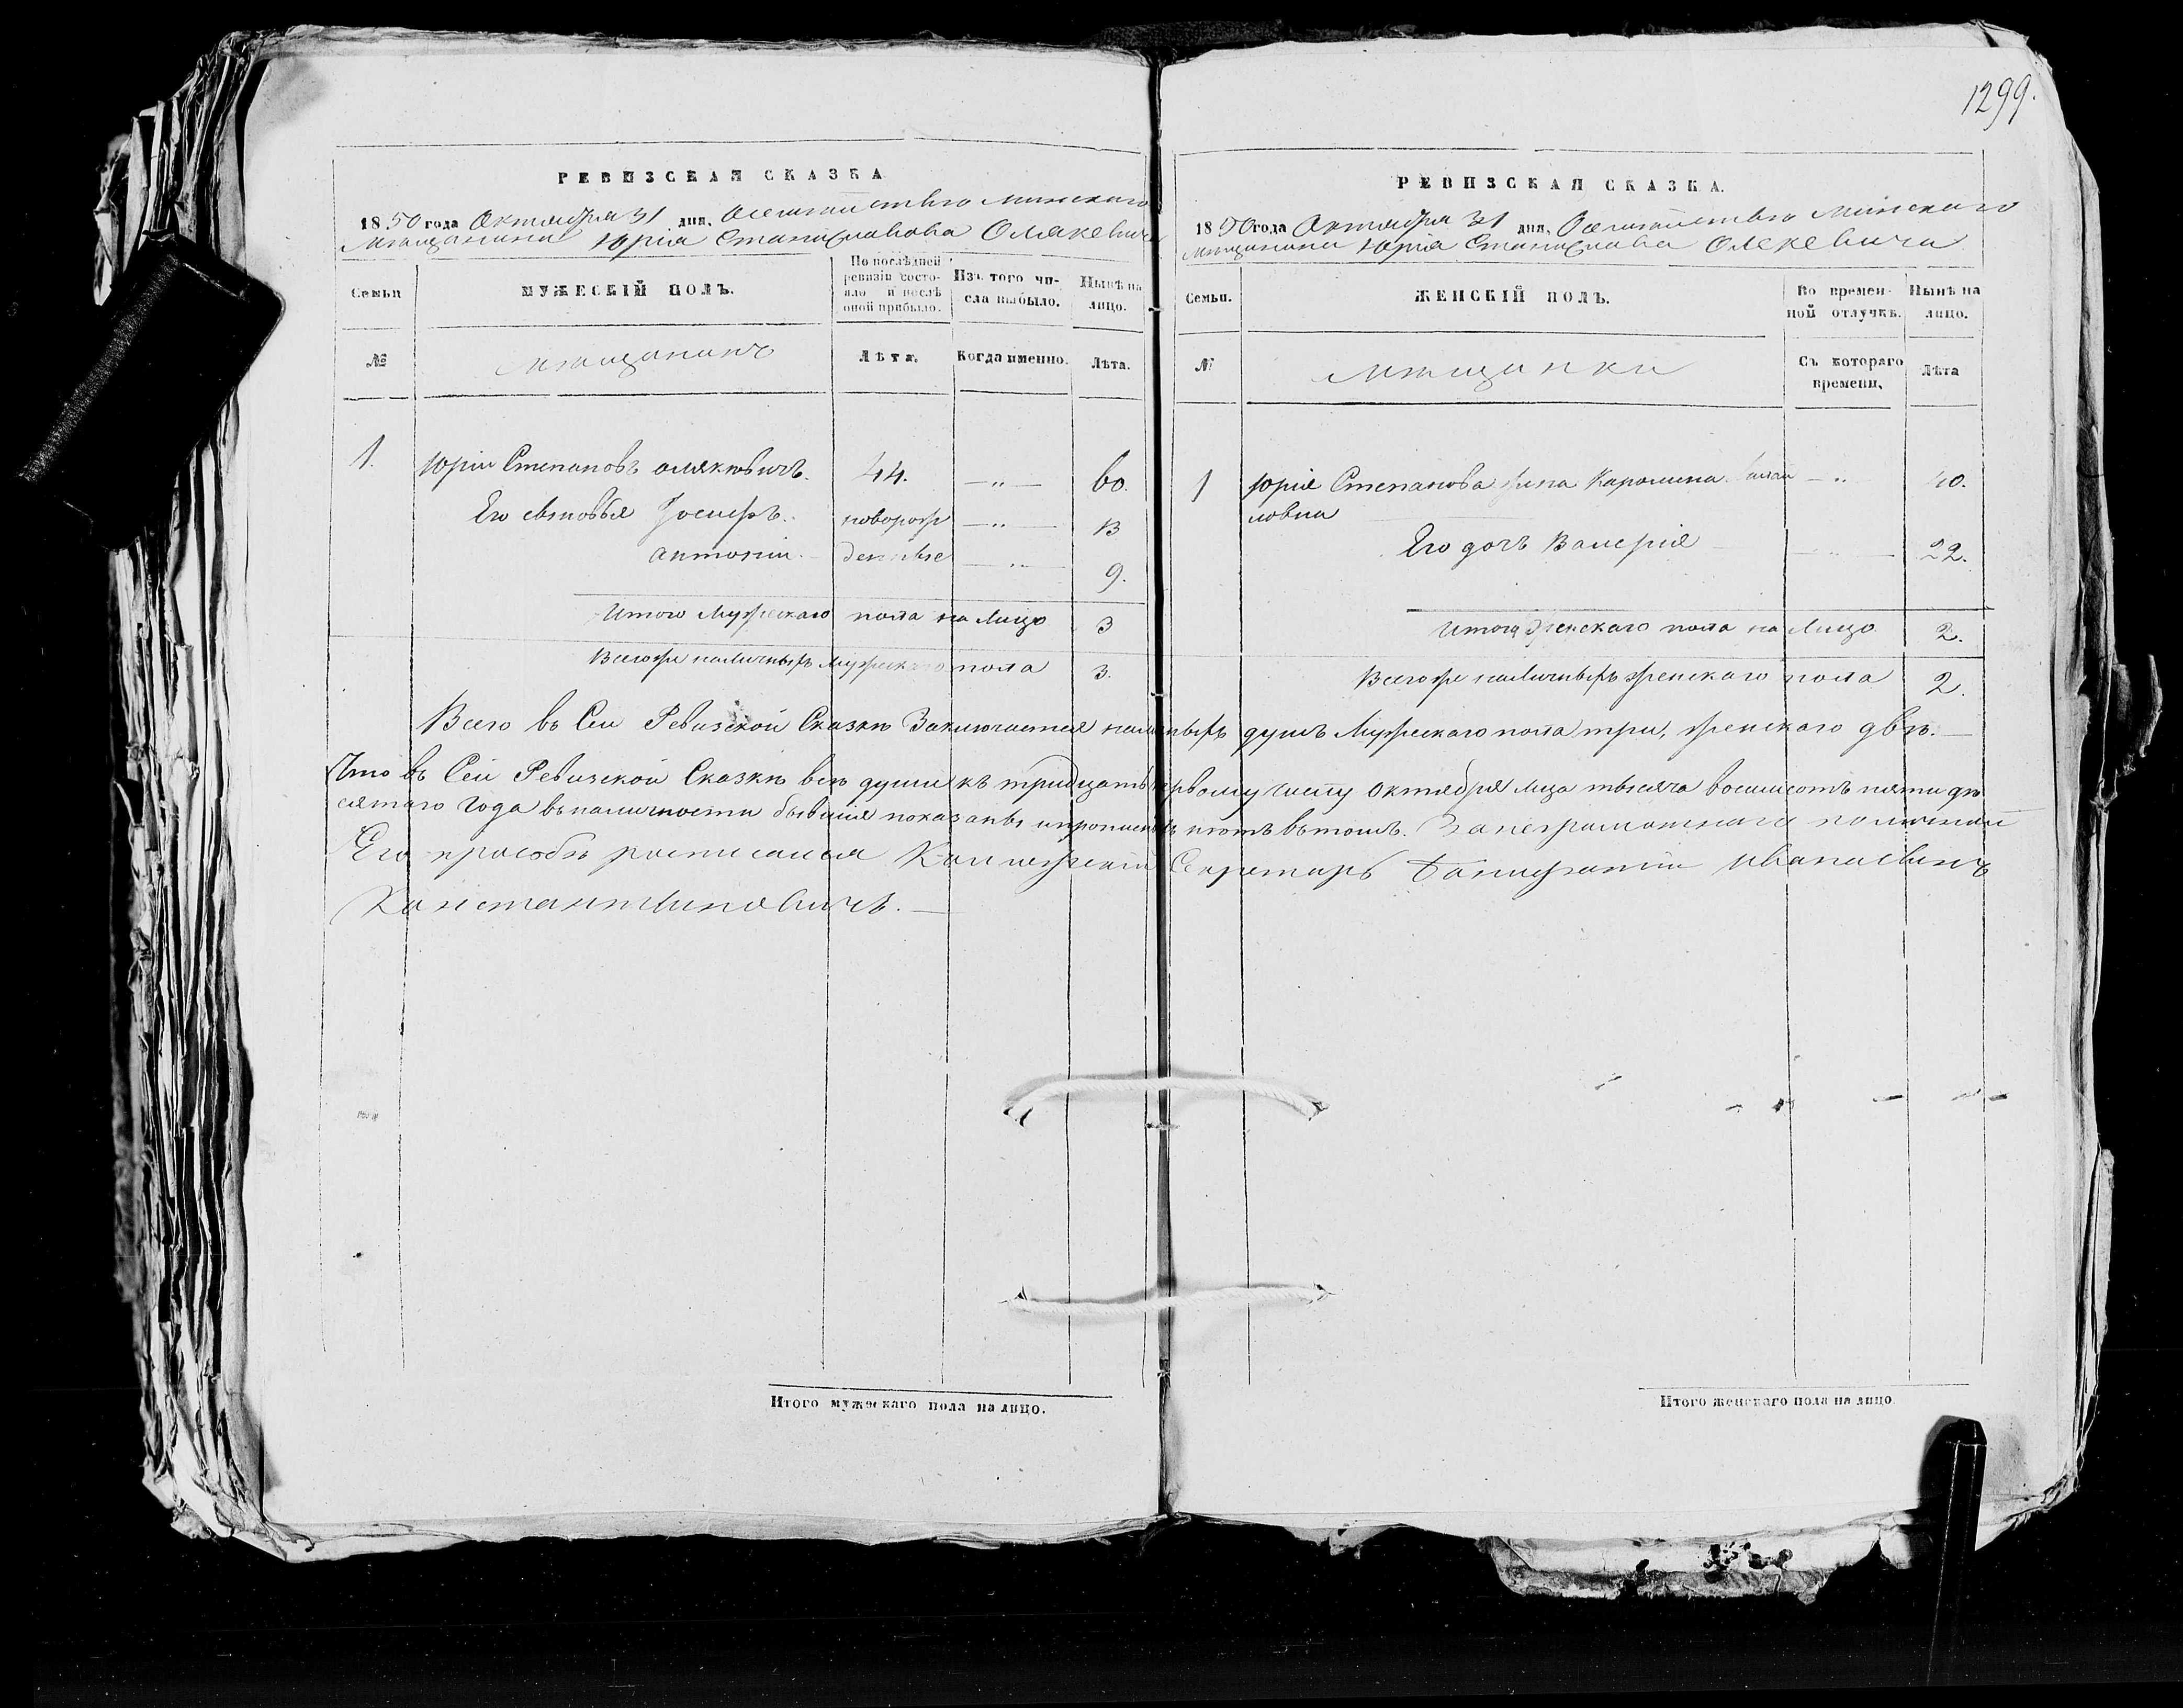 1299.
РЕВИЗСКАЯ СКАЗКА
1850 года Октября 31 дня, О семействѣ Минскаго
Мѣщанина Юрія Станиславова Олякевича
Семьи
МУЖЕСКІЙ ПОЛЪ.
По послѣдней ревизіи состояло и послѣ оной прибыло.
Изъ того числа выбыло.
Нынѣ на лицо.
№
мѣщанинъ
Лѣта.
Когда именно.
Лѣта.
1. Юрій Степановъ Олякевичъ. 44. — „ — 60.
Его сыновья Іосифъ. новорож — „ — 13
Антоній. — — „ — 9.
Итого Мужескаго пола на Лицо 3
Всего же наличныхъ мужескаго пола 3.
РЕВИЗСКАЯ СКАЗКА.
1850 года Октября 31 дня, О семействѣ Минскаго
мѣщанина Юрія Станислава Олекевича
Семьи.
ЖЕНСКІЙ ПОЛЪ.
Во временной отлучкѣ.
Нынѣ на лицо.
№
мѣщанки
Съ котораго времени,
Лѣта
1 Юрія Степанова жена Каролина — „ 40.
ловна
Его дочь Валерія — 22.
Итого Женскаго пола на Лицо 2.
Всего же наличныхъ женскаго пола 2.
Всего въ Сей Ревизской Сказкѣ Заключается наличныхъ душъ Мужескаго пола три, женскаго двѣ. —
Что въ Сей Ревизской Сказкѣ всѣ души къ тридцать первому числу Октября мца тысяча восимсотъ пятидѣ
сятаго Года въ наличности бывшія показаны и прописныхъ нѣтъ въ томъ. За неграмотнаго по личной
Его прозбѣ росписался Коллежскій Секретарь Иванъ сынъ
Константиновичъ. —
Итого мужескаго пола на лицо.
Итого женскаго пола на лицо